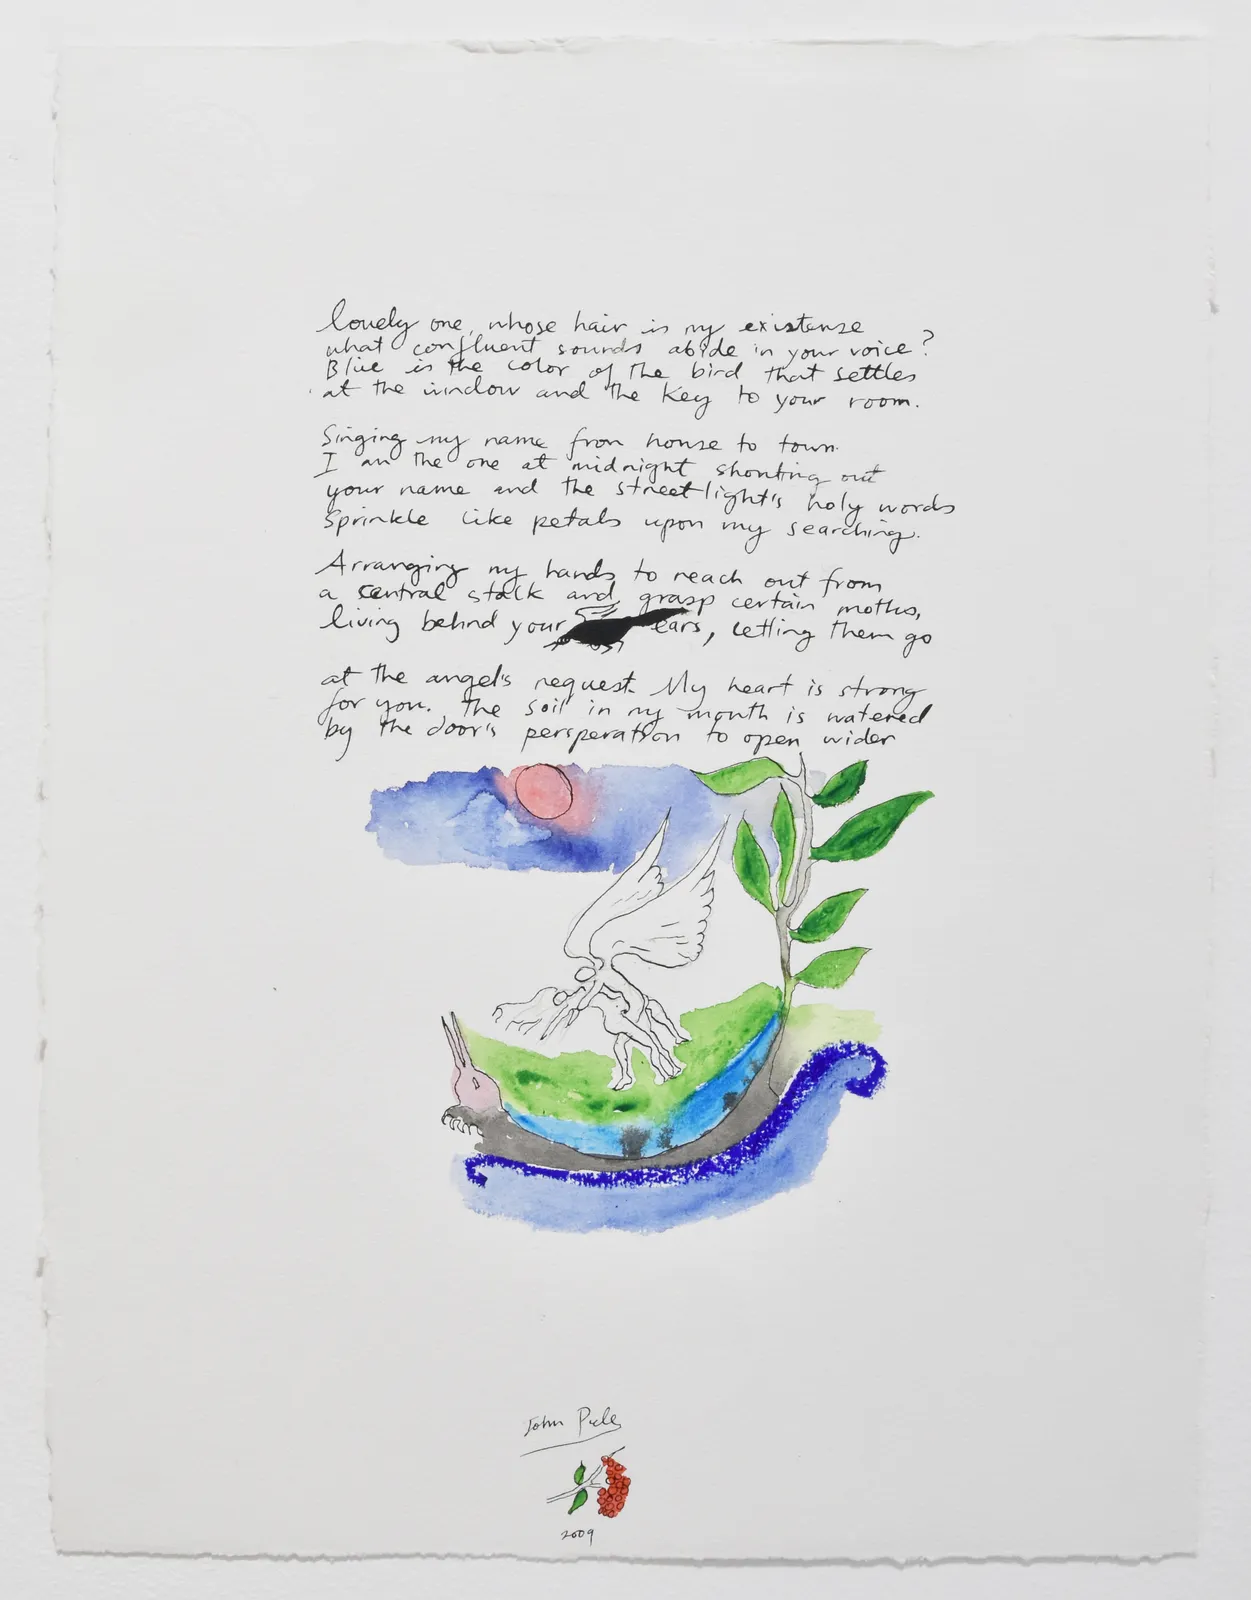 lovely one, whose hair is my existense
what confluent sounds abide in your voice?
Blue is the color of the bird that settles
at the window and the key to your room.
Singing my name from house to town.
I am the one at midnight shouting out
your name and the streetlight's holy words
sprinkle like petals upon my searching.
Arranging my hands to reach out from
a central stalk and grasp certain moths,
living behind your ears, letting them go
at the angel's request. My heart is strong
for you. The soil in my mouth is watered
by the door's persperation to open wider
John Pule
2009